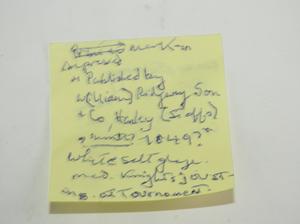 mark on
impress
" Published by
William Ridgway Son
& Co, Hanley (Staffs)
1849?"
White salt glaze.
med. Knights joust-
ing at Tournament.